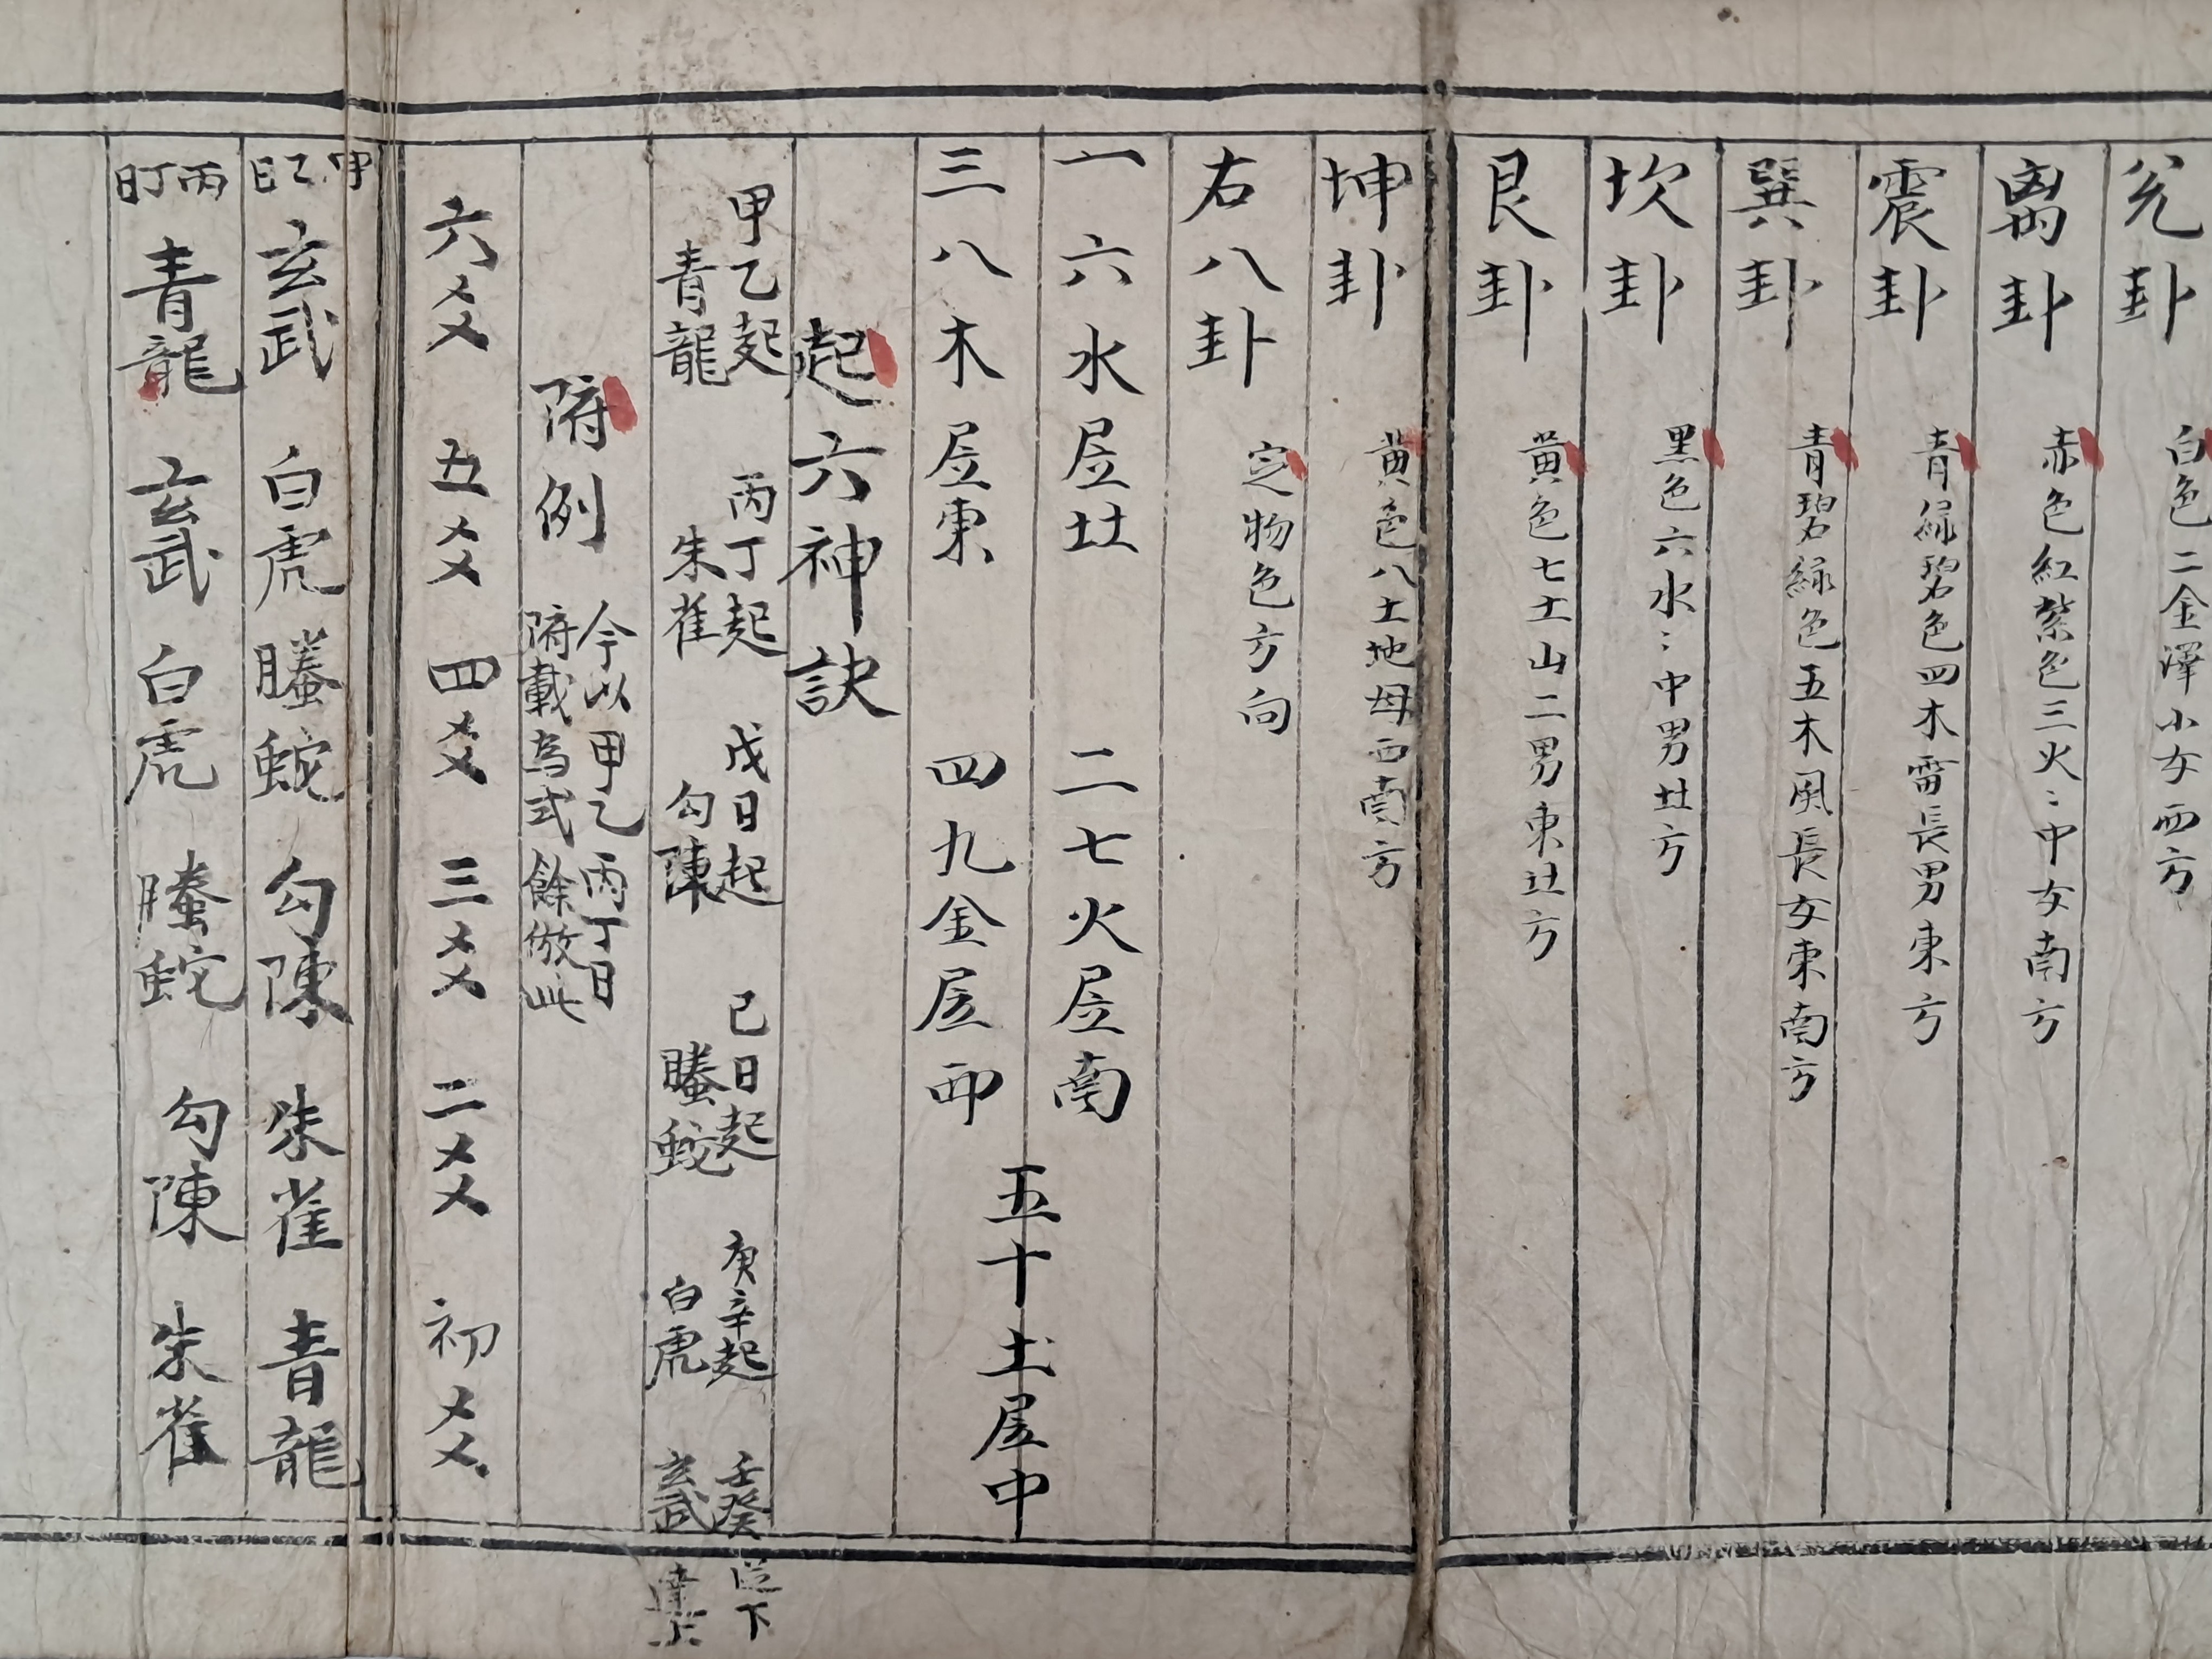 兊卦 白色二金澤小女西方
离卦 赤色紅紫色三火〻中女南方
震卦 青綠碧色四木雷長男東方
巽卦 青碧綠色五木風長女東南方
坎卦 黑色六水〻中男北方
艮卦 黄色七土山二男東北方
坤卦 黄色八土地母西南方
右八卦 定物色方向
一六水居北 二七火居南
三八木居東 四九金居西
五十土居中
起六神訣
甲乙起青龍 丙丁起朱雀 戊日起勾陳 己日起螣蛇 庚辛起白虎 壬癸起玄武 從下達上
附例 今以甲乙丙丁日附載為式餘倣此
六爻 五爻 四爻 三爻 二爻 初爻
甲乙日 玄武 白虎 螣蛇 勾陳 朱雀 青龍
丙丁日 青龍 玄武 白虎 螣蛇 勾陳 朱雀